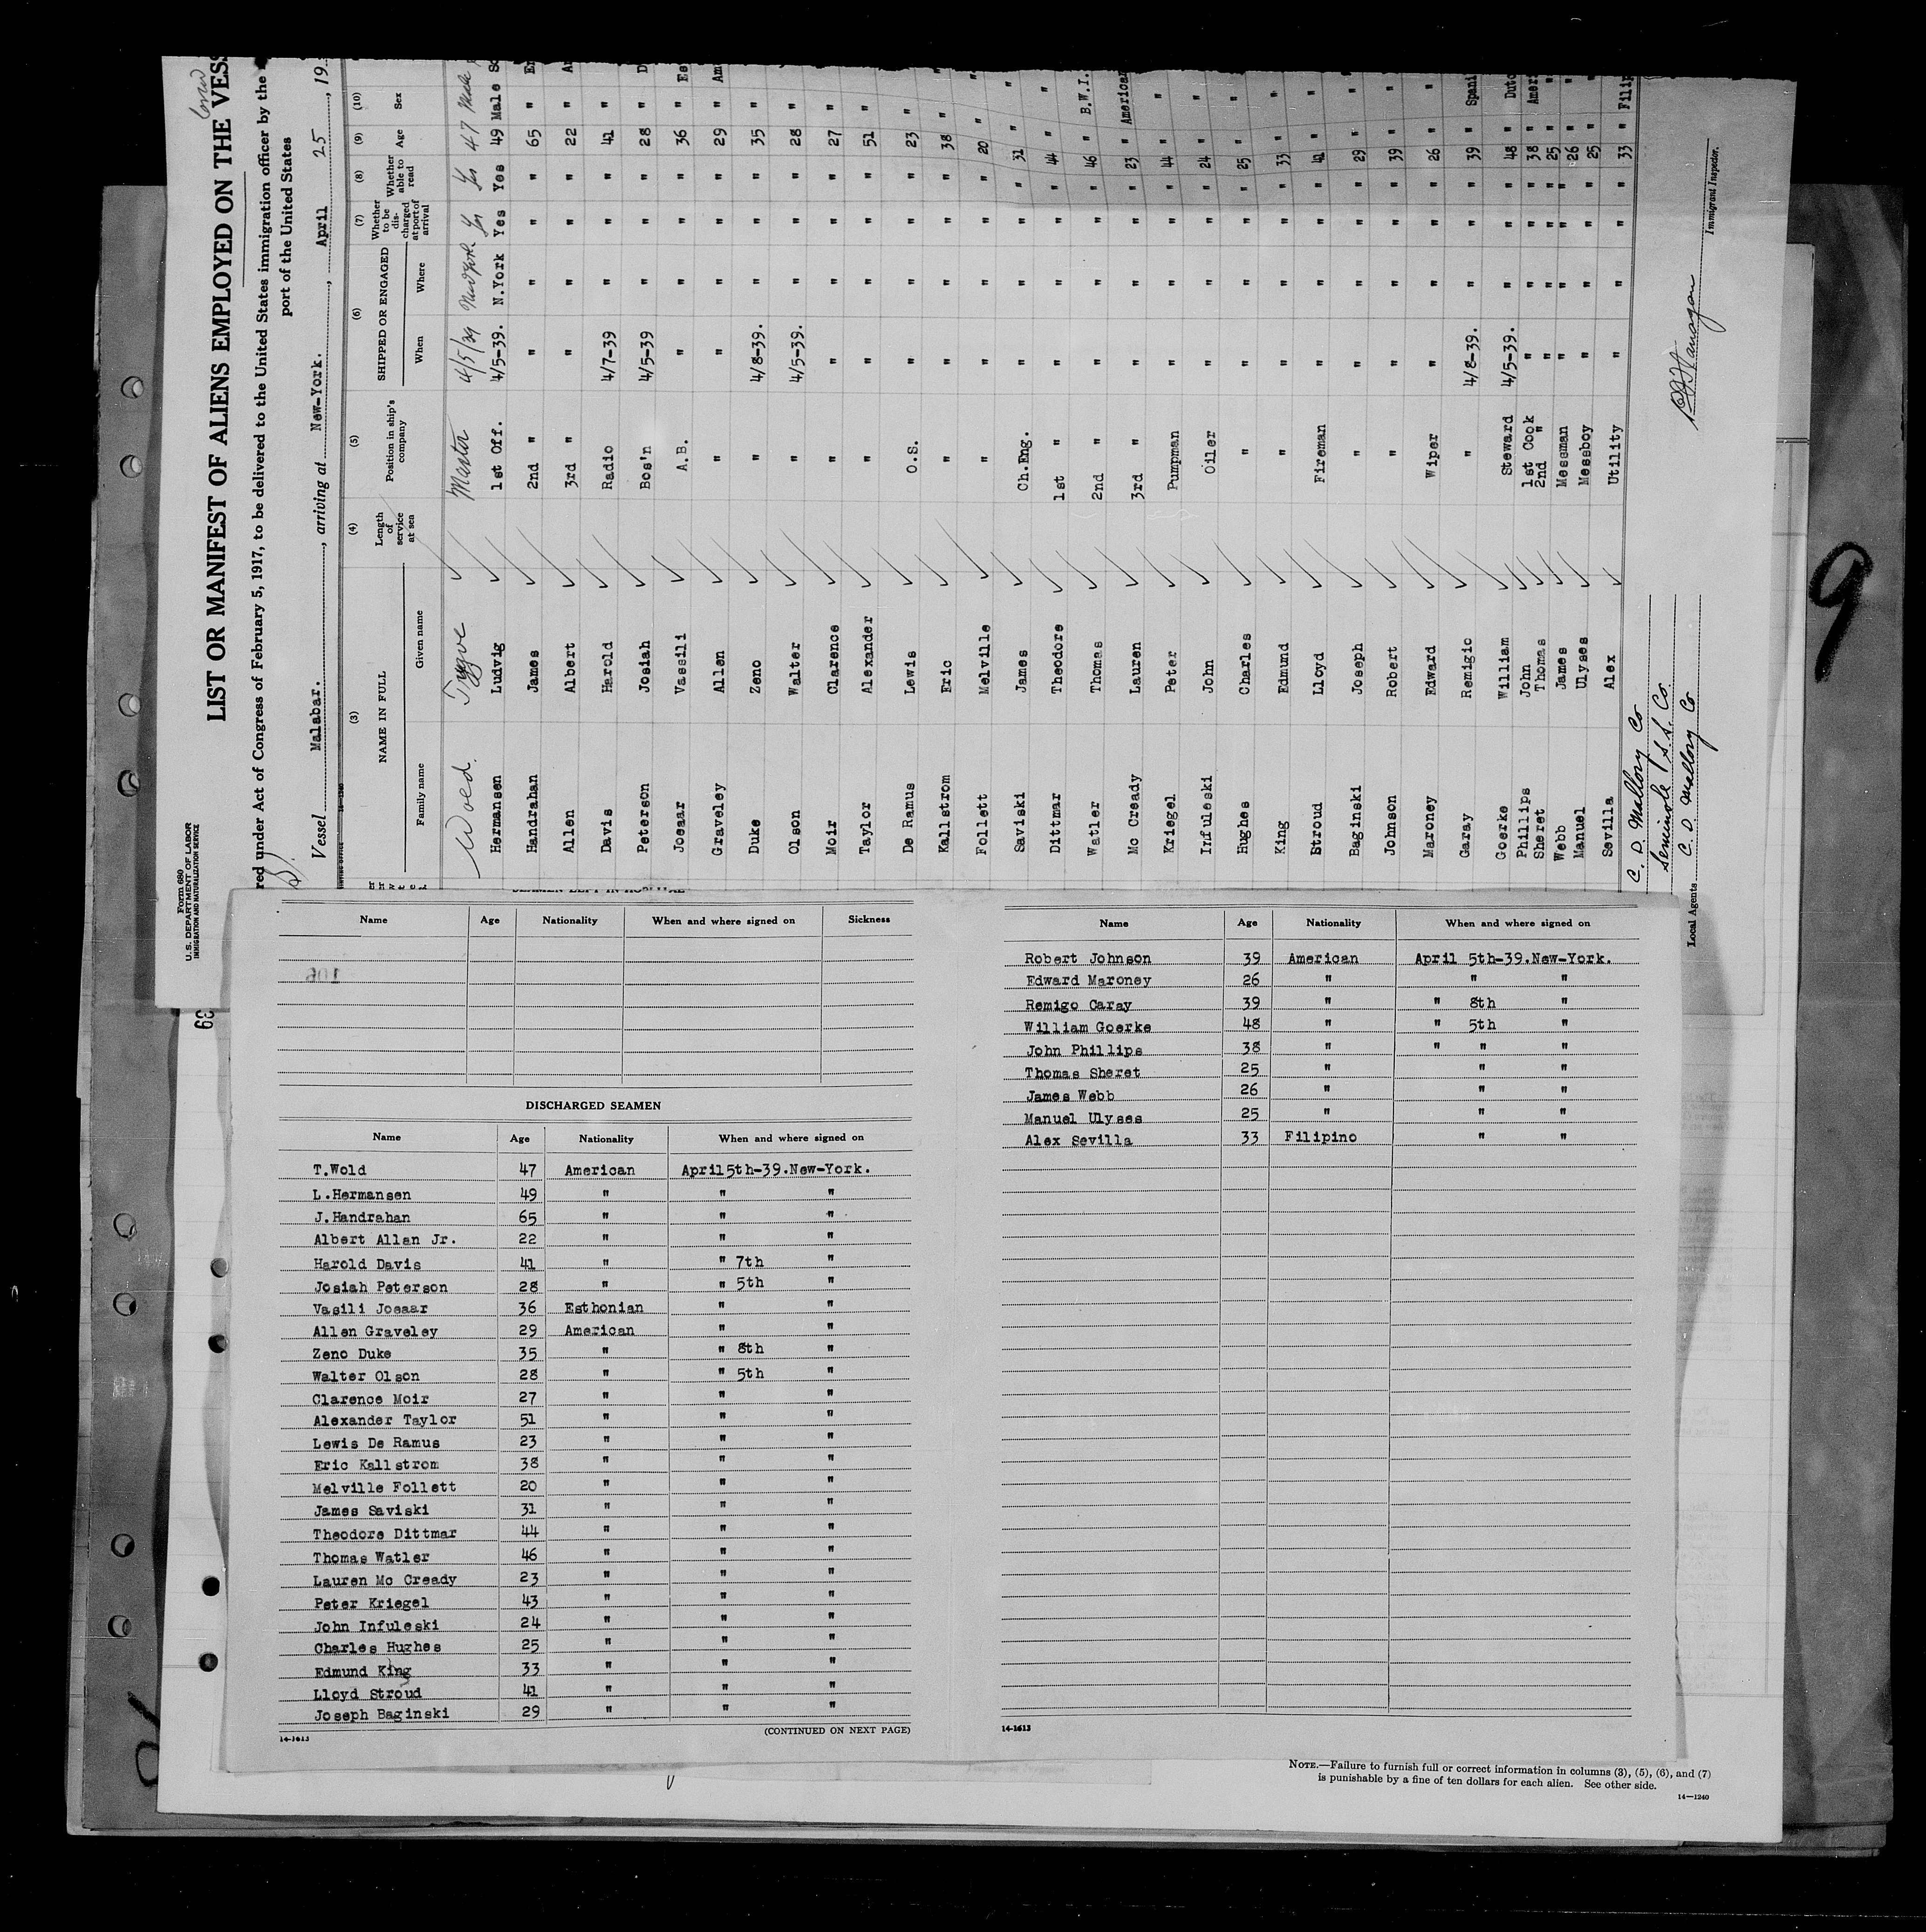 LIST OR MANIFEST OF ALIENS EMPLOYED ON THE VESS
red under Act of Congress of February 5, 1917, to be delivered to the United States immigration officer by the
port of the United States
Form 680
U. S. DEPARTMENT OF LABOR
IMMIGRATION AND NATURALIZATION SERVICE
Vessel Malabar. , arriving at New-York. , April 25 , 19
(3) (4) (5) (6) (7) (8) (9) (10)
NAME IN FULL Length of service at sea Position in ship's company SHIPPED OR ENGAGED Whether to be discharged at port of arrival Whether able to read Age Sex
Family name Given name When Where
Woed. Trygve Master 4/5/39 New York Yes Yes 47 Male
Hermansen Ludvig 1st Off. 4/5-39. N.York Yes Yes 49 Male Sc
Handrahan James 2nd " " " " " 65 " En
Allen Albert 3rd " " " " " 22 " Am
Davis Harold Radio 4/7-39 " " " 41 "
Peterson Josiah Bos'n 4/5-39 " " " 28 " D
Joesar Vassili A.B. " " " " 36 " Es
Graveley Allen " " " " " 29 " Am
Duke Zeno " 4/8-39. " " " 35 "
Olson Walter " 4/5-39. " " " 28 "
Moir Clarence " " " " " 27 "
Taylor Alexander " " " " " 51 " "
De Ramus Lewis O.S. " " " " 23 " "
Kallstrom Eric " " " " " 38 " "
Follett Melville " " " " " 20 " "
Saviski James Ch.Eng. " " " " 31 " "
Dittmar Theodore 1st " " " " " 44 " "
Watler Thomas 2nd " " " " " 46 " B.W.I.
Mc Cready Lauren 3rd " " " " " 23 " American
Kriegel Peter Pumpman " " " " 44 " "
Infuleski John Oiler " " " " 24 " "
Hughes Charles " " " " " 25 " "
King Edmund " " " " " 33 " "
Stroud Lloyd Fireman " " " " 41 " "
Baginski Joseph " " " " " 29 " "
Johnson Robert " " " " " 39 " "
Maroney Edward Wiper " " " " 26 " "
Garay Remigio " 4/8-39. " " " 39 " Spani
Goerke William Steward 4/5-39. " " " 48 " Dutc
Phillips John 1st Cook " " " " 38 " Amer
Sheret Thomas 2nd " " " " " 25 " "
Webb James Messman " " " " 26 " "
Manuel Ulyses Messboy " " " " 25 " "
Sevilla Alex Utility " " " " 33 " Filip
C. D. Mallory Co
Seminole S.S. Co.
Local Agents C. D. Mallory Co
Immigrant Inspector.
9
SEAMEN LEFT IN HOSPITAL
Name Age Nationality When and where signed on Sickness
DISCHARGED SEAMEN
Name Age Nationality When and where signed on
T.Wold 47 American April5th-39.New-York.
L.Hermansen 49 " " "
J.Handrahan 65 " " "
Albert Allan Jr. 22 " " "
Harold Davis 41 " " 7th "
Josiah Peterson 28 " " 5th "
Vasili Joesar 36 Esthonian " "
Allen Graveley 29 American " "
Zeno Duke 35 " " 8th "
Walter Olson 28 " " 5th "
Clarence Moir 27 " " "
Alexander Taylor 51 " " "
Lewis De Ramus 23 " " "
Eric Kallstrom 38 " " "
Melville Follett 20 " " "
James Saviski 31 " " "
Theodore Dittmar 44 " " "
Thomas Watler 46 " " "
Lauren Mc Cready 23 " " "
Peter Kriegel 43 " " "
John Infuleski 24 " " "
Charles Hughes 25 " " "
Edmund King 33 " " "
Lloyd Stroud 41 " " "
Joseph Baginski 29 " " "
14-1613 (CONTINUED ON NEXT PAGE)
Name Age Nationality When and where signed on
Robert Johnson 39 American April 5th-39.New-York.
Edward Maroney 26 " " "
Remigo Caray 39 " " 8th "
William Goerke 48 " " 5th "
John Phillips 38 " " " "
Thomas Sheret 25 " " "
James Webb 26 " " "
Manuel Ulyses 25 " " "
Alex Sevilla 33 Filipino " "
14-1613
NOTE.—Failure to furnish full or correct information in columns (3), (5), (6), and (7)
is punishable by a fine of ten dollars for each alien. See other side.
14—1240